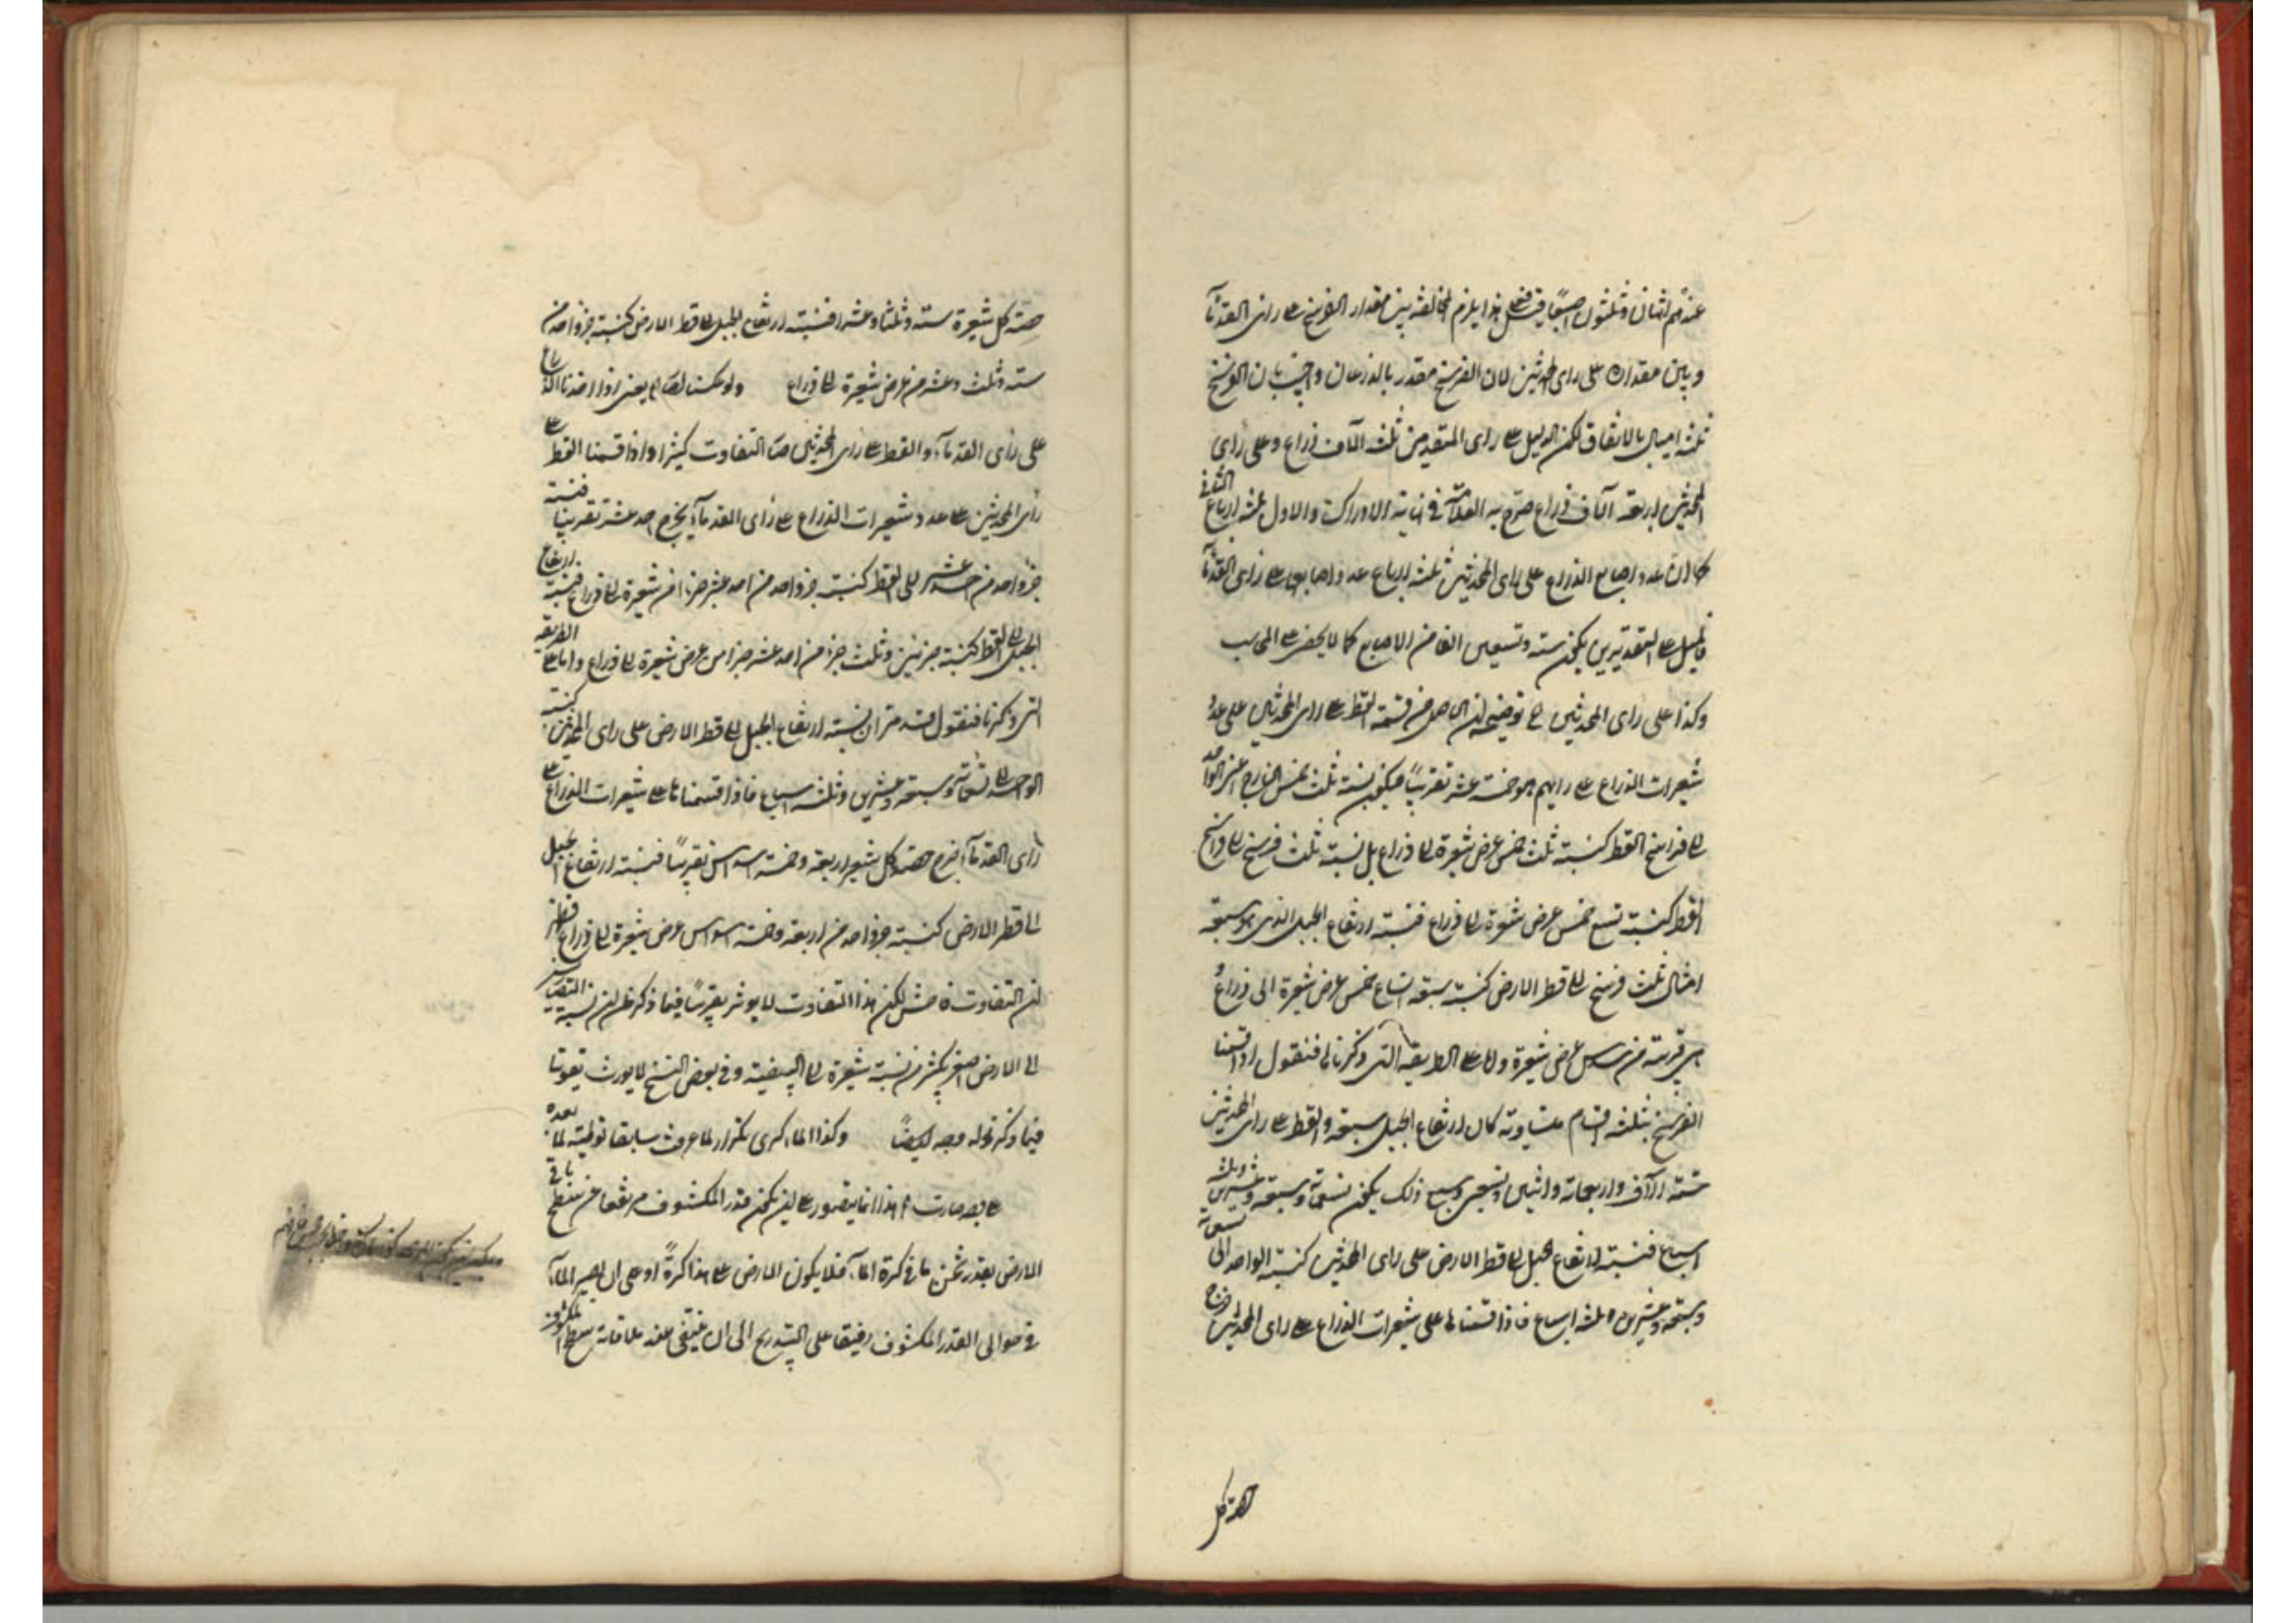 عندهم اثنان وثلثون اصبعا فعلى هذا يلزم المخالفة بين مقدار الفرسخ على راى القدمآ
وبين مقداره على راى المحدثين لان الفرسخ مقدر بالذرعان واجيب بان الفرسخ
ثلثة اميال بالاتفاق لكن الميل على راى المتقدمين ثلثة آلاف ذراع وعلى راى
المحدثين اربعة آلاف ذراع صرح به العلامة في نهاية الادراك والاول ثلثة ارباع الثانى
كما ان عدد اصابع الذراع على راى المحدثين ثلثة ارباع عدد اصابعها على راى القدمآ
فالميل على التقديرين يكون ستة وتسعين الفا من الاصابع كما لا يخفى على المحاسب
وكذا على راى المحدثين توضيحه ان الحاصل من قسمة القطر على راى المحدثين على عدد
شعيرات الذراع على رايهم هو خمسة عشر تقريبا فيكون نسبة ثلث خمس الخارج اعنى الواحد
الى فراسخ القطر كنسبة ثلث خمس عرض شعيرة الى ذراع بل نسبة ثلث فرسخ الى فراسخ
القطر كنسبة تسع خمس عرض شعيرة الى ذراع فنسبة ارتفاع الجبل الذى هو سبعة
امثال ثلث فرسخ الى قطر الارض كنسبة سبعة اتساع خمس عرض شعيرة الى ذراع و
هى قريبة من سدس عرض شعيرة واما على الطريقة التى ذكرناها فنقول اذا قسمنا
الفرسخ بثلثة اقسام متساوية كان ارتفاع الجبل سبعة والقطر على راى المحدثين
ستة آلاف واربعمائة واثنين وتسعين وسبع ذلك يكون تسعمائة وسبعة وعشرين وثلثة
اسباع فنسبة ارتفاع الجبل الى قطر الارض على راى المحدثين كنسبة الواحد الى تسعمائة
وسبعة وعشرين وثلثة اسباع فاذا قسمناها على شعيرات الذراع على راى المحدثين خرج
حصة كل
حصة كل شعيرة ستة وثلثا وعشرا فنسبة ارتفاع الجبل الى قطر الارض كنسبة جزء واحد من
ستة وثلث وعشر من عرض شعيرة الى ذراع ولو عكسنا لصار يعنى اذا اخذنا الذراع
على راى القدمآء والقطر على راى المحدثين صار التفاوت كثيرا واذا قسمنا القطر على
راى المحدثين على عدد شعيرات الذراع على راى القدمآء يخرج احد عشر تقريبا فنسبة
جزء واحد من احد عشر الى القطر كنسبة جزء واحد من احد عشر جزءا من شعيرة الى ذراع فنسبة ارتفاع
الجبل الى القطر كنسبة جزئين وثلث جزء من احد عشر جزءا من عرض شعيرة الى ذراع واما على الطريقة
التى ذكرنا فنقول قد مر ان نسبة ارتفاع الجبل الى قطر الارض على راى المحدثين كنسبة
الواحد الى تسعمائة وسبعة وعشرين وثلثة اسباع فاذا قسمناها على شعيرات الذراع على
راى القدمآء خرج حصة كل شعيرة اربعة وخمسة اسداس تقريبا فنسبة ارتفاع الجبل
الى قطر الارض كنسبة جزء واحد من اربعة وخمسة اسداس عرض شعيرة الى ذراع فظهر
ان التفاوت فاحش لكن هذا التفاوت لا يوثر تقريبا فيما ذكر ظن ان نسبة التضاريس
الى الارض اصغر بكثير من نسبة شعيرة الى البيضة وفى بعض النسخ لا يورث تفوتا
فيما ذكر وله وجه ايضا وكذا المآء كرى تكرار لما عرفت سابقا توطية لما بعده
على بعد صارت هذا انما يتصور على ان يكون قدر المكشوف مرتفعا عن سطح باقى
الارض بقدر ثخن ما فى كرة المآء فلا يكون الارض على هذا كرة او على ان يصير المآء
فى حوالى القدر المكشوف رقيقا على التدريج الى ان ينتفى عند ملاقاة سطح المكشوف